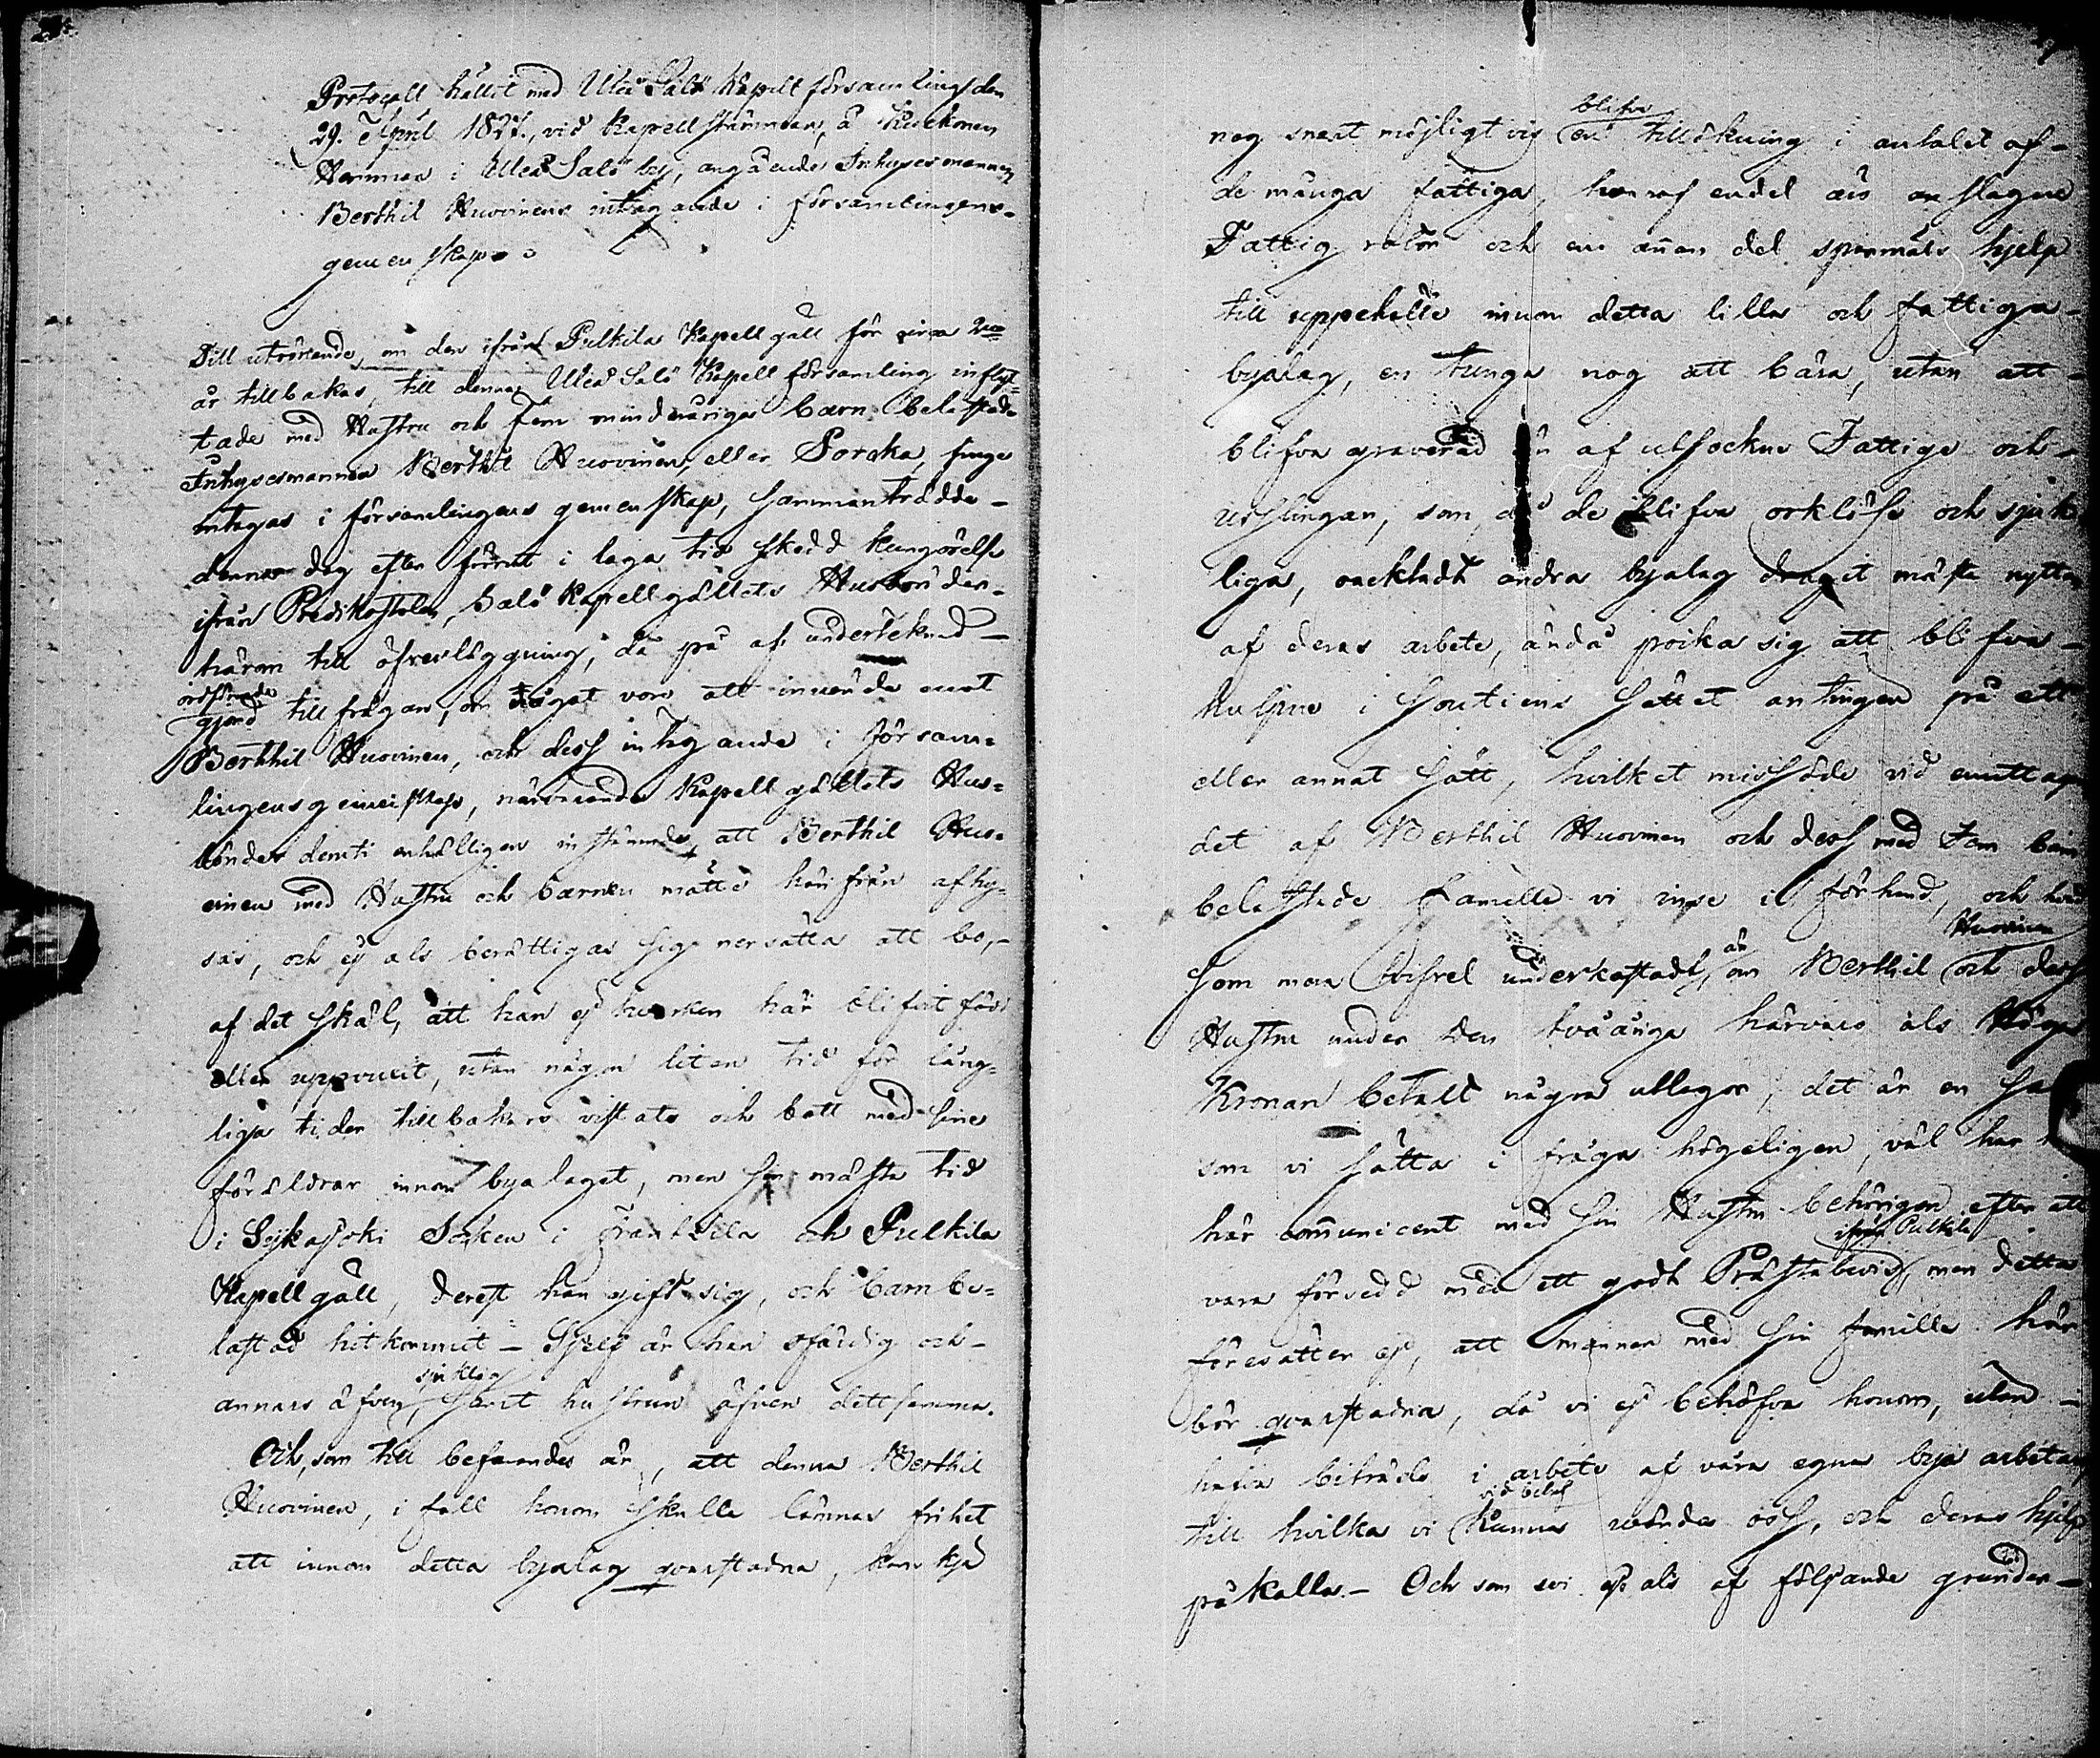 Protocoll hållit med Uleå Salö Kapell församling den
29. April 1827., vid Kapellstämman, å Kuckonen
Hemman i Uleå Salö by, angående Inhysesmannen
Berthil Huovinens intagande i församlingens-
gemenskap.
Till utrönande, om den ifrån Pulkila Kapellgäll för circa 2ne
år tillbakas, till denna Uleå Salö Kapell församling inflyt-
tade med Hustru och Fem minderåriga barn belastade
Inhysesmannen Berthil Huovinen, eller Sorcka, finge
intagas i församlingens gemenskap, sammanträdde-
denna dag efter förut i laga tid skedd kungörelse
ifrån Predikostolen, Salö Kapellgällets Husbönder-
härom till öfverläggning, då på af underteknad-
ordförande
gjord tillfrågan, om något vore att invända emot
Berthil Huovinen, och dess intagande i försam-
lingens gemenskap, närvarande Kapellgällets Hus-
bönder deruti enhälligen instämde, att Berthil Huo-
vinen med Hustru och barnen måtte härifrån afhy-
sas, och ej als berättigas sig nersätta att bo,-
af det skäl, att han ej hvarken här blifvit född
eller uppvuxit, utan någon liten tid för läng-
liga tider tillbakars vistats och bott med sine
föräldrar innom byalaget, men sin mästa tid
i Sijkajoki Socken i Frantsila och Pulkila
Kapellgäll, derest han gift sig, och barn be-
lastad hitkommit – Sjelf är han ofärdig och-
sjuklig
annars äfven, samt hustrun äfven dettsamma.
Och, som till befarandes är, att denna Berthil
Huovinen, i fall honom skulle lämnas frihet
att innom detta byalag qvarstadna, kan ske
blifva
nog snart möjligtvis en tillökning i antalet af-
de många fattiga, hvaraf endel äro anslagne
Fattig rotar och en annan del spanmåls hjelp
till uppehälle innom detta lilla och fattiga-
byalag, en tunga nog att bära, utan att-
blifva graverad än af utsocknes Fattige och-
usslingar, som, då de blifva orklösse och sjuk-
liga, oacktadt andra byalag dragit mästa nyttan
af deras arbete, ändå poika sig att blifva-
hulpne i Soutiens sättet antingen på ett
eller annat sätt, hvilket missöde vid emottagan
det af Berthil Huovinen och dess med Fem barn
belastade Famille vi inse i förhand, och hvad
Huovinen
som mera tvifvel underkastadt, är om Berthil och dess
Hustru under den tvååriga härvaro als Höga
Kronan betalt några utlagor, det är en sak
som vi sätta i fråga högeligen, väl har
här communicerat med sin Hustru behörigen efter att
ifrån Pulkila
vara försedd med ett godt Prästabevis, men detta
föresätter ej, att mannen med sin famille här
bör qvarstadna, då vi ej behöfva honom, utan -
hafva biträde i arbete af våra egna bya arbetare
vid behof
till hvilka vi kunna vända oss, och deras hjelp
påkalla.– Och som vi ej als af följande grunder-